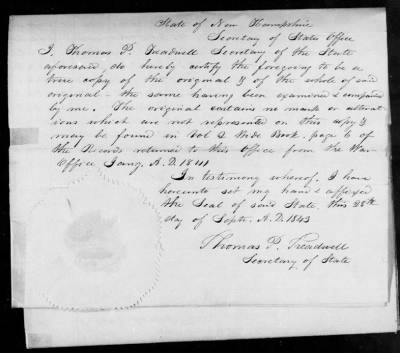 State of New Hampshire
Secretary of States Office
I. Thomas P. Treadwell Secretary of the State
aforesaid, do hereby certify the foregoing to be a
true copy of the original & of the whole of said
original - the same having been examined & compared
by me. The original contains no mark or alterat
ions which are not represented on this copy &
may be found in Vol 2 Wide Book. page 6 of
the Records returned to this Office from the War
Office Jany. A.D. 1841
In testimony whereof, I have
hereunto set my hand & affixed
the Seal of said State, this 28th
day of Sept. A.D. 1843
Thomas P. Treadwell
Secretary of State